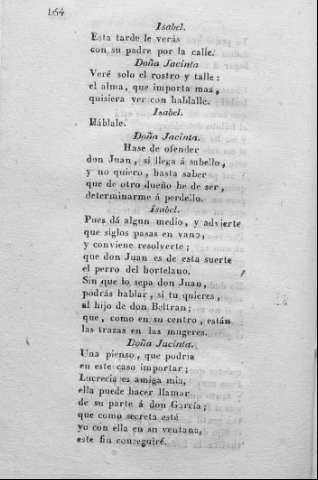 164
Isabel.
Esta tarde le verás
con su padre por la calle.
Doña Jacinta
Veré solo el rostro y talle:
el alma, que importa mas,
quisiera ver con hablalle.
Isabel.
Háblale.
Doña Jacinta.
Hase de ofender
don Juan, si llega á sabello,
y no quiero, hasta saber
que de otro dueño he de ser,
determinarme á perdello.
Isabel.
Pues dá algun medio, y advierte
que siglos pasas en vano,
y conviene resolverte;
que don Juan es de esta suerte
el perro del hortelano.
Sin que lo sepa don Juan,
podrás hablar, si tu quieres,
al hijo de don Beltran;
que, como en su centro, están
las trazas en las mugeres.
Doña Jacinta.
Una pienso, que podria
en este caso importar;
Lucrecia es amiga mia,
ella puede hacer llamar
de su parte á don García;
que como secreta esté
yo con ella en su ventana,
este fin conseguiré.